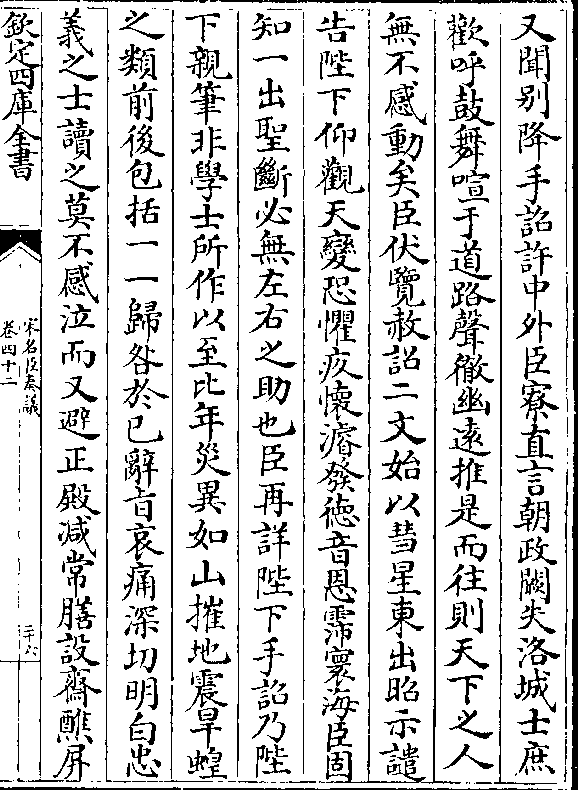 又聞别降手詔許中外臣寮直言朝政闕失洛城士庶
歡呼鼓舞喧于道路聲徹幽遠推是而往則天下之人
無不感動矣臣伏覽赦詔二文始以彗星東出昭示譴
告陛下仰觀天變恐懼疚懷濬發徳音恩霈寰海臣固
知一出聖斷必無左右之助也臣再詳陛下手詔乃陛
下親筆非學士所作以至比年災異如山摧地震旱蝗
之類前後包括一一歸咎於已辭㫖哀痛深切明白忠
義之士讀之莫不感泣而又避正殿减常膳設齋醮屏
欽定四庫全書
宋名臣奏議
卷四十二
二十六